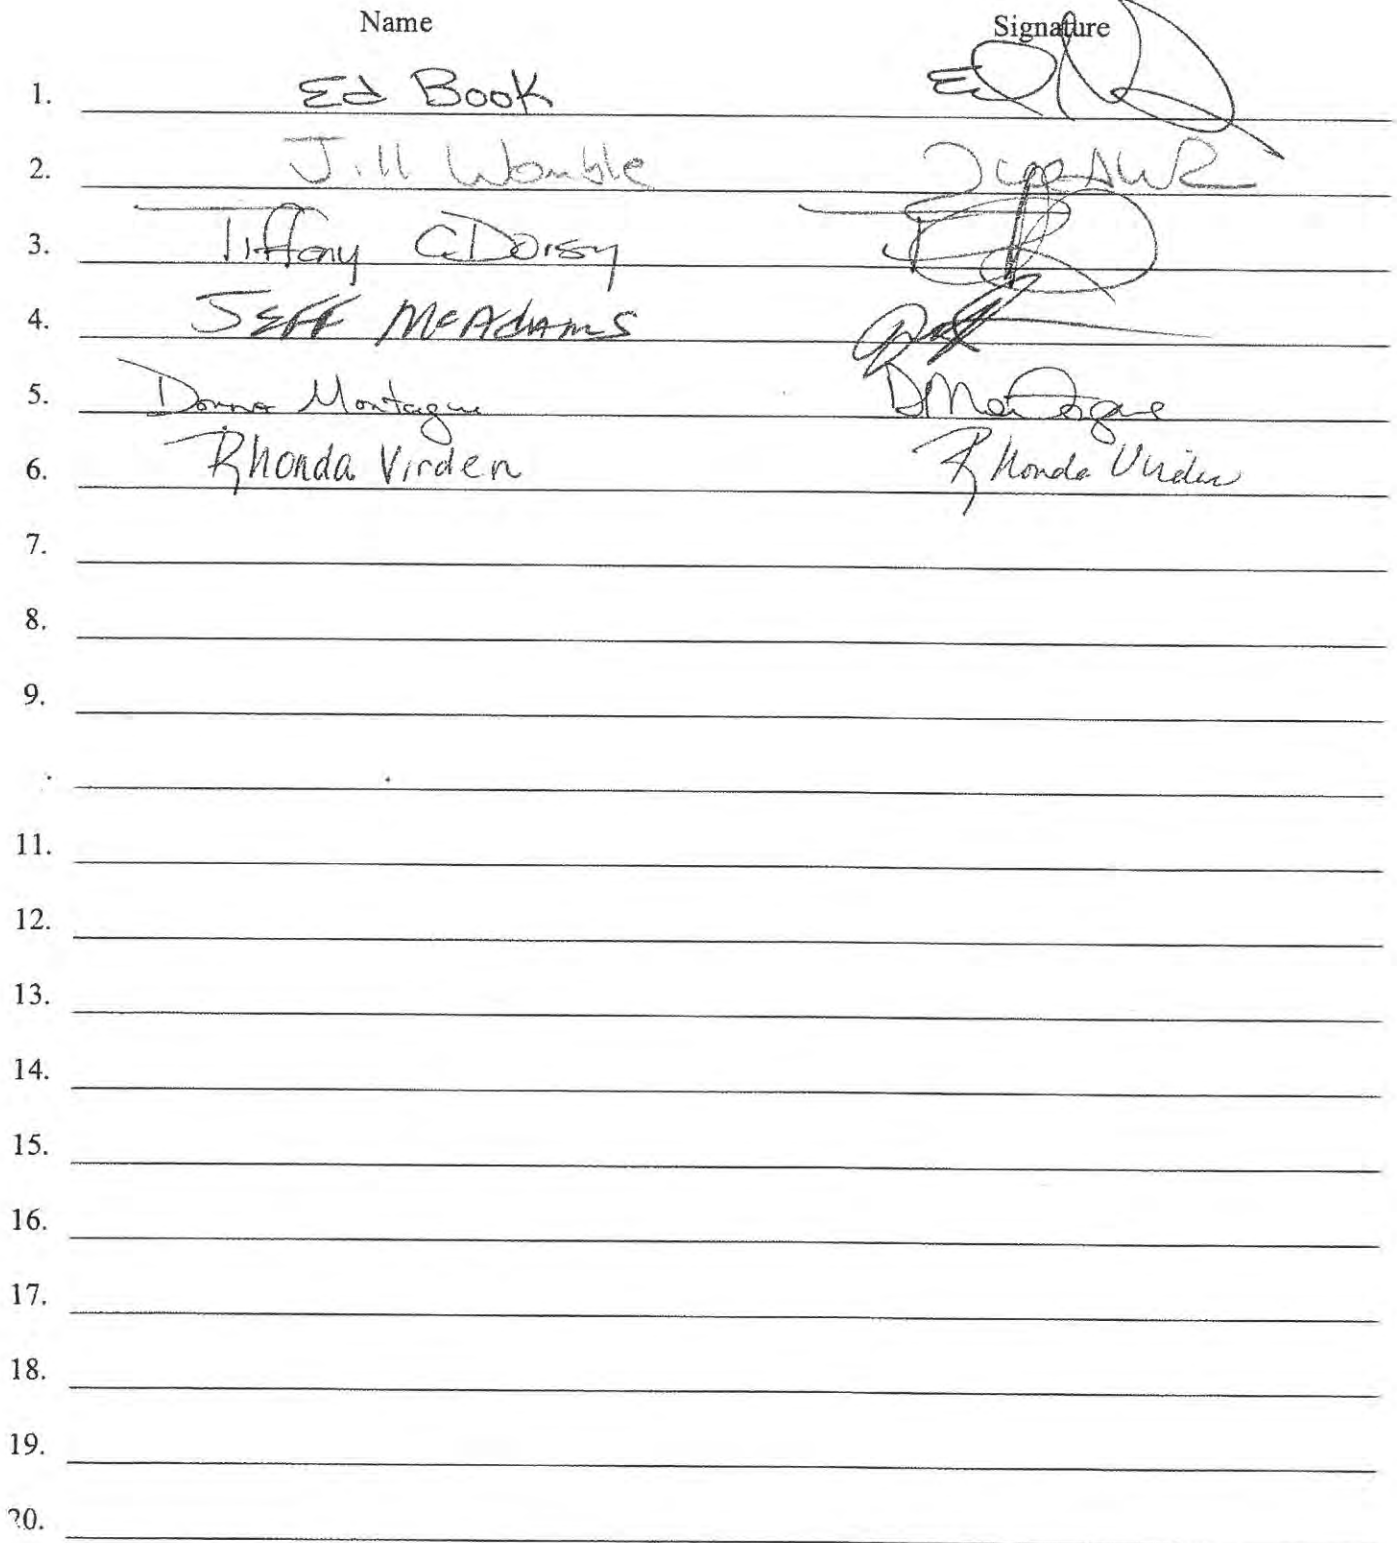 Name Signature
1. Ed Book
2. Jill Womble
3. Tiffany C Doisy
4. JEFF McAdams
5. Donna Montague DMontague
6. Rhonda Virden Rhonda Virden
7.
8.
9.
11.
12.
13.
14.
15.
16.
17.
18.
19.
20.